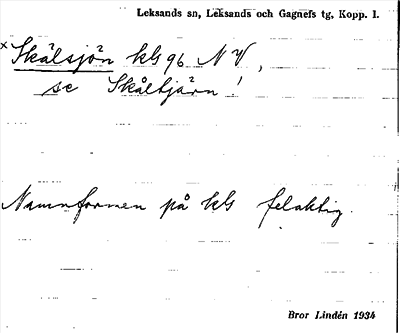 Leksands sn, Leksands och Gagnefs tg, Kopp. l.
× Skålsjön kbl 96 NV,
se Skåltjärn!
Namnformen på kbl felaktig.
Bror Lindén 1934